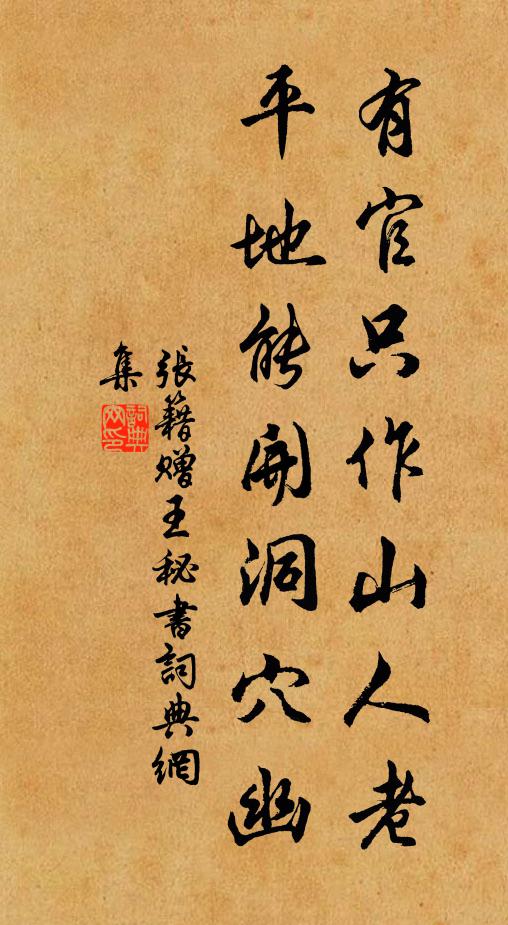 有官只作山人老
平地能開洞穴幽
張籍贈王秘書詞典網
集
詞典
網印